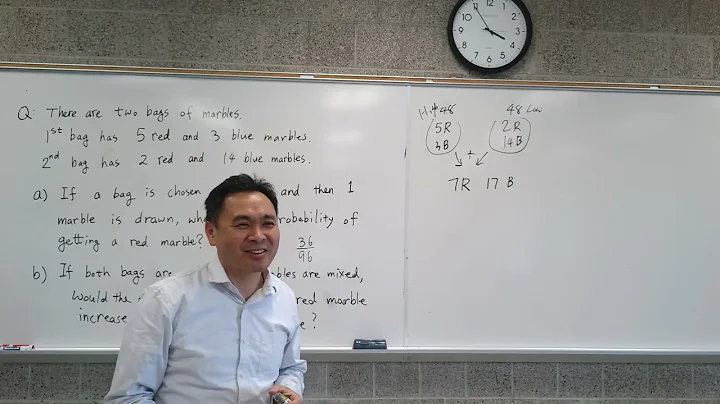 Q: There are two bags of marbles.
1st bag has 5 red and 3 blue marbles.
2nd bag has 2 red and 14 blue marbles.
a) If a bag is chosen and then 1
marble is drawn, probability of
getting a red marble? 36/96
b) If both bags are marbles are mixed,
would the red marble
increase ?
48 48 Low
5R 2R
3B 14B
+
7R 17 B
12 1 2 3 4 5 6 7 8 9 10 11